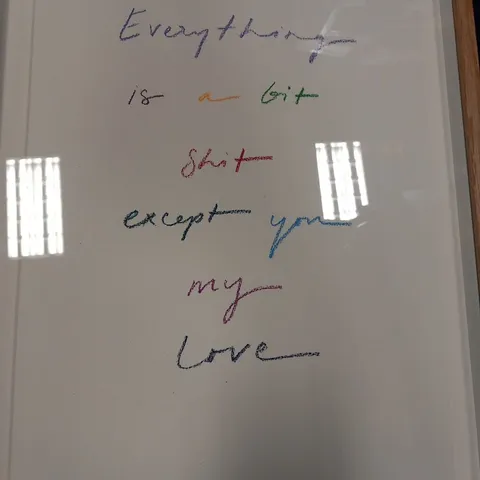 Everything
is a bit
shit
except you
my
love